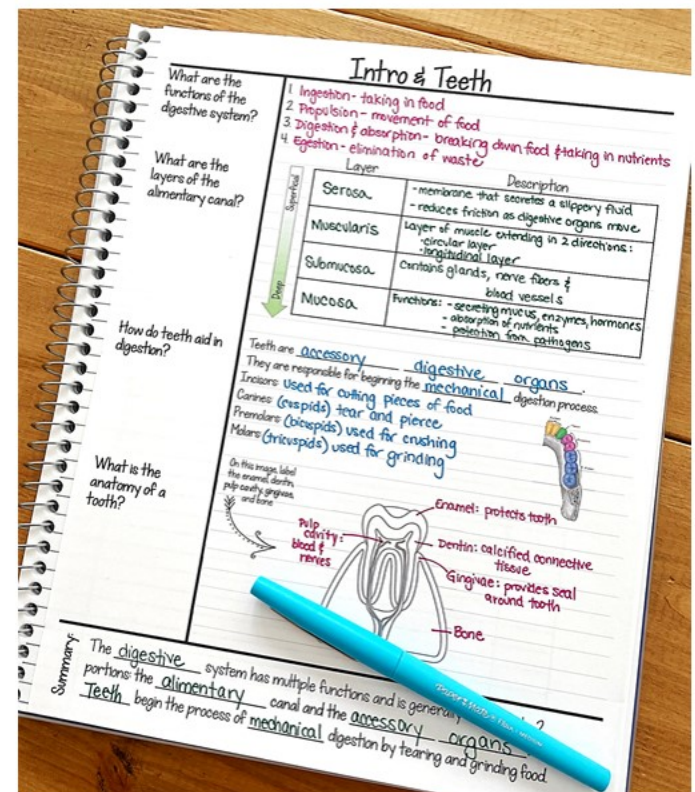 Intro & Teeth
What are the
functions of the
digestive system?
1. Ingestion- taking in food
2. Propulsion - movement of food
3. Digestion & absorption - breaking down food & taking in nutrients
4. Egestion - elimination of waste
What are the
layers of the
alimentary canal?
Superficial
Deep
Layer Description
Serosa
-membrane that secretes a slippery fluid
- reduces friction as digestive organs move
Muscularis
Layer of muscle extending in 2 directions:
-circular layer
-longitudinal layer
Submucosa
Contains glands, nerve fibers &
blood vessels
Mucosa
Functions: - secreting mucus, enzymes, hormones
- absorption of nutrients
- protection from pathogens
How do teeth aid in
digestion?
Teeth are accessory digestive organs.
They are responsible for beginning the mechanical digestion process.
Incisors used for cutting pieces of food
Canines (cuspids) tear and pierce
Premolars (bicuspids) used for crushing
Molars (tricuspids) used for grinding
What is the
anatomy of a
tooth?
On this image, label
the enamel, dentin,
pulp cavity, gingivae,
and bone
Pulp
cavity:
blood &
nerves
Enamel: protects tooth
Dentin: calcified connective
tissue
Gingivae: provides seal
around tooth
Bone
Summary:
The digestive system has multiple functions and is generally 2
portions: the alimentary canal and the accessory organs.
Teeth begin the process of mechanical digestion by tearing and grinding food.